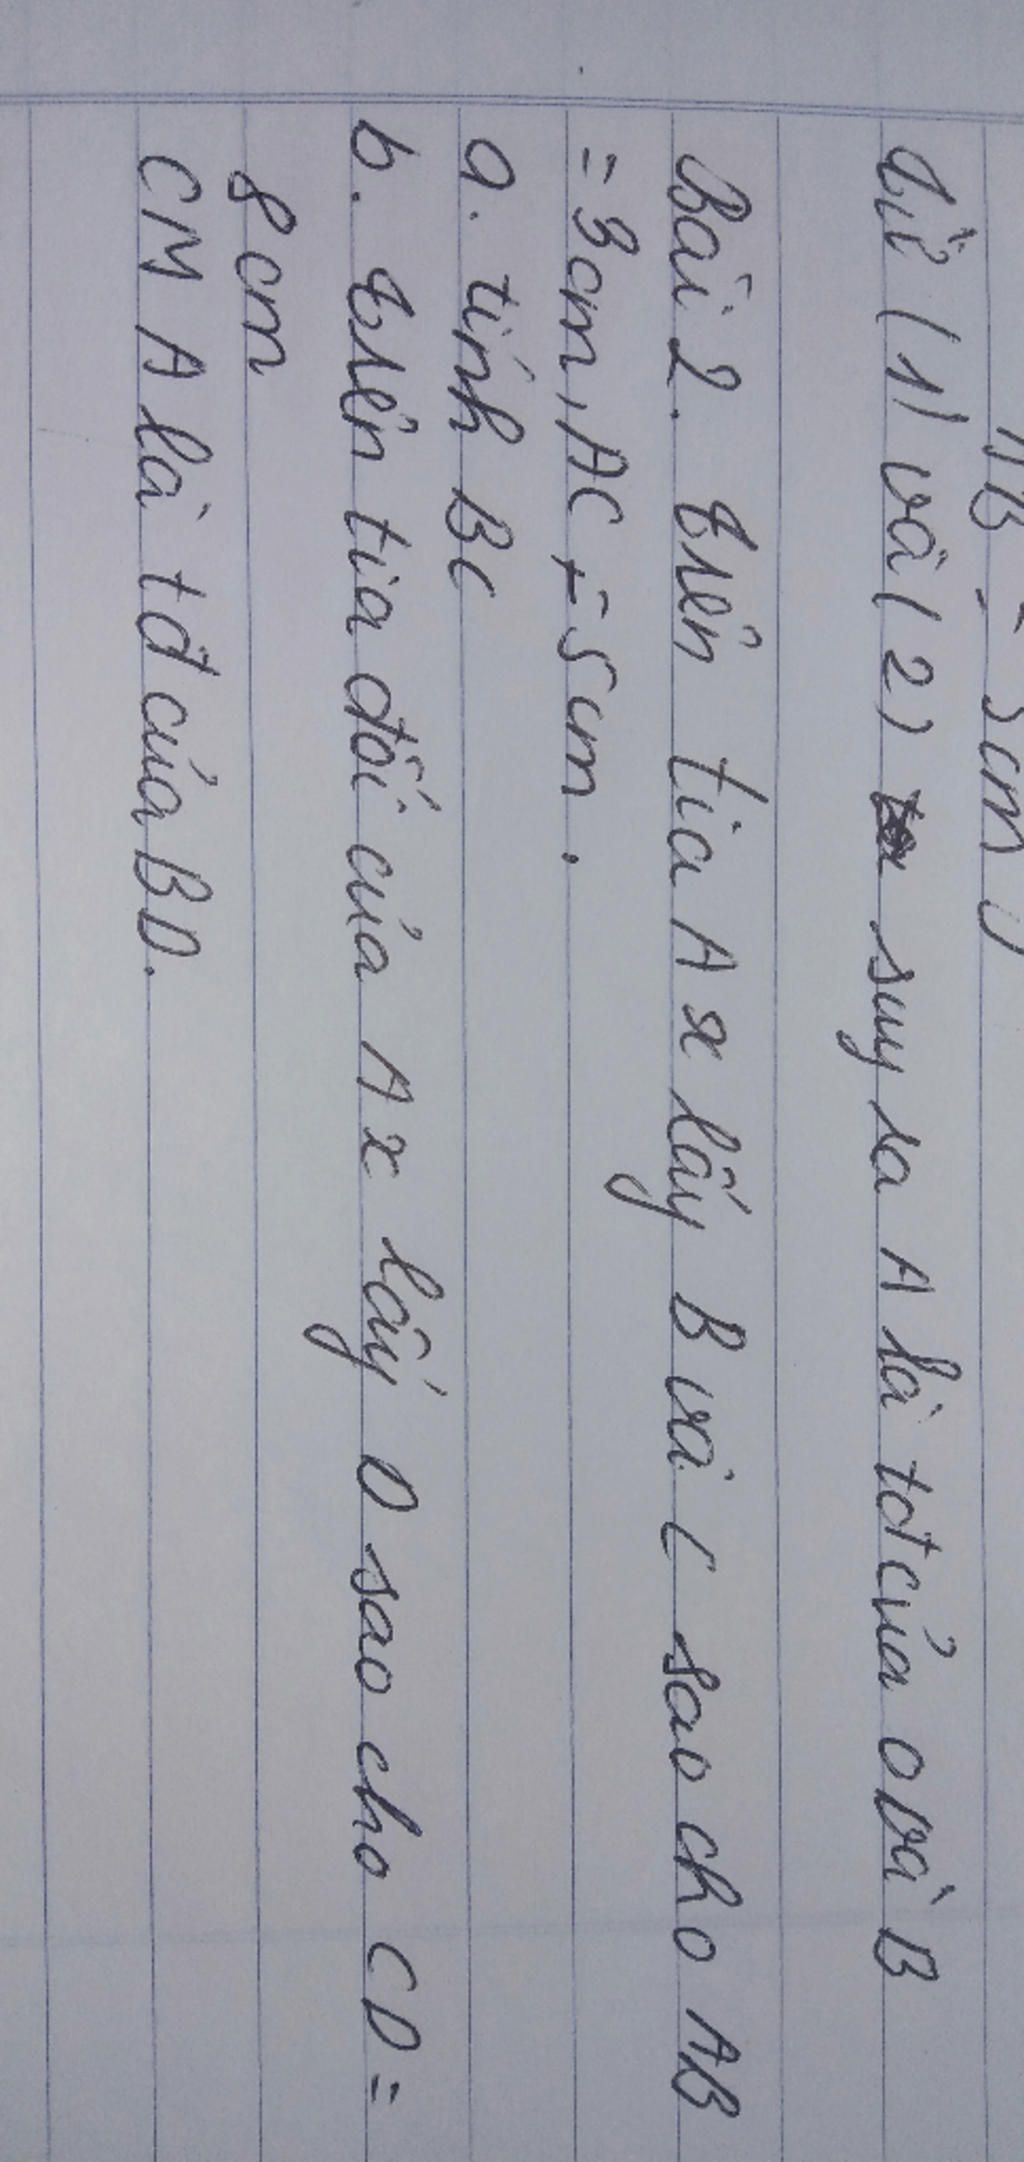 AB = 3cm
từ (1) và (2) suy ra A là tđ của O và B
Bài 2. trên tia Ax lấy B và C sao cho AB
= 3cm, AC = 5cm.
a. tính BC
b. trên tia đối của Ax lấy D sao cho CD =
8cm
CM A là tđ của BD.